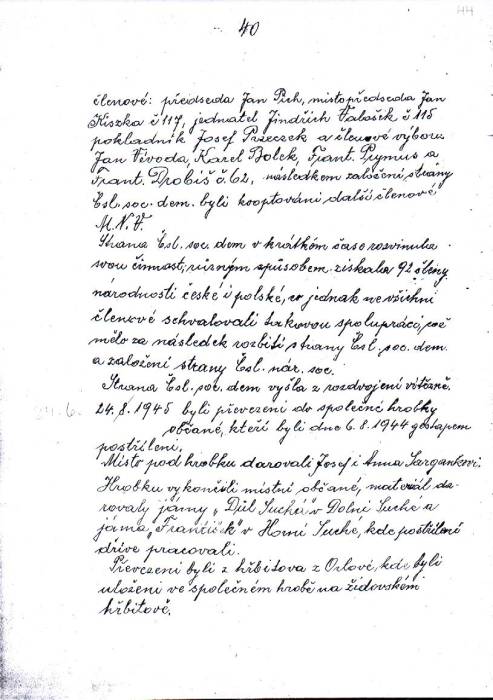 44
40
členové: předseda Jan Pich, místopředseda Jan
Kiszka č 117, jednatel Jindřich Valošek č 115
pokladník Josef Pszeczek a členové výboru
Jan Vévoda, Karel Bolek, Frant. Prymus a
Frant. Drobiš č. 62, následkem založení strany
Čsl. soc. dem. byli kooptováni další členové
M.N.V.
Strana Čsl. soc. dem v krátkém čase rozvinula
svou činnost, různým způsobem získala 92 členy
národnosti české i polské, co jednak ne všichni
členové schvalovali takovou spolupráci, což
mělo za následek rozbití strany Čsl. soc. dem.
a založení strany Čsl. nár. soc.
Strana Čsl. soc. dem vyšla z rozdvojení vítězně.
24.6. 24. 8. 1945 byli převezeni do společné hrobky
občané, kteří byli dne 6. 8. 1944 gestapem
postříleni.
Místo pod hrobku darovali Josef i Anna Sargankovi.
Hrobku vykončili místní občané, materiál da-
rovaly jámy „Důl Suchá" v Dolní Suché a
jáma „František" v Horní Suché, kde postřílení
dříve pracovali.
Převezeni byli z hřbitova z Orlové, kde byli
uloženi ve společném hrobě na židovském
hřbitově.